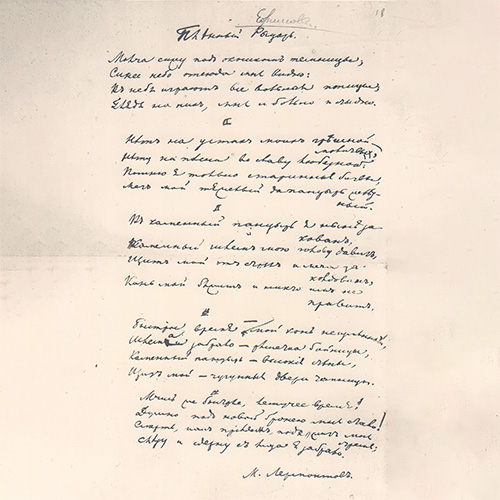 18
Плѣнный Рыцарь.
Молча сижу подъ окошкомъ темницы,
Синее небо отсюда мнѣ видно:
Въ небѣ играютъ все вольныя птицы;
Глядя на нихъ, мнѣ и больно и стыдно.
II
Нѣтъ на устахъ моихъ грѣшной
молитвы,
Нѣту ни пѣсни во славу любезной:
Помню я только старинныя битвы,
Мечъ мой тяжелый да панцырь желѣз-
ный.
Въ каменный панцырь я нынѣ за-
кованъ,
Каменный шлемъ мою голову давитъ,
Щитъ мой отъ стрѣлъ и меча за-
колдованъ,
Конь мой бѣжитъ и никто имъ не
правитъ.
Быстрое время – мой конь неизмѣнный,
Шлема забрало – рѣшетка бойницы,
Каменный панцырь – высокія стѣны,
Щитъ мой – чугунныя двери темницы.
Мчись же быстрѣе, летучее время!
Душно подъ новой бронею мнѣ стало!
Смерть, какъ пріѣдемъ, подержитъ мнѣ
стремя;
Слѣзу и сдерну съ лица я забрало.
М. Лермонтовъ.